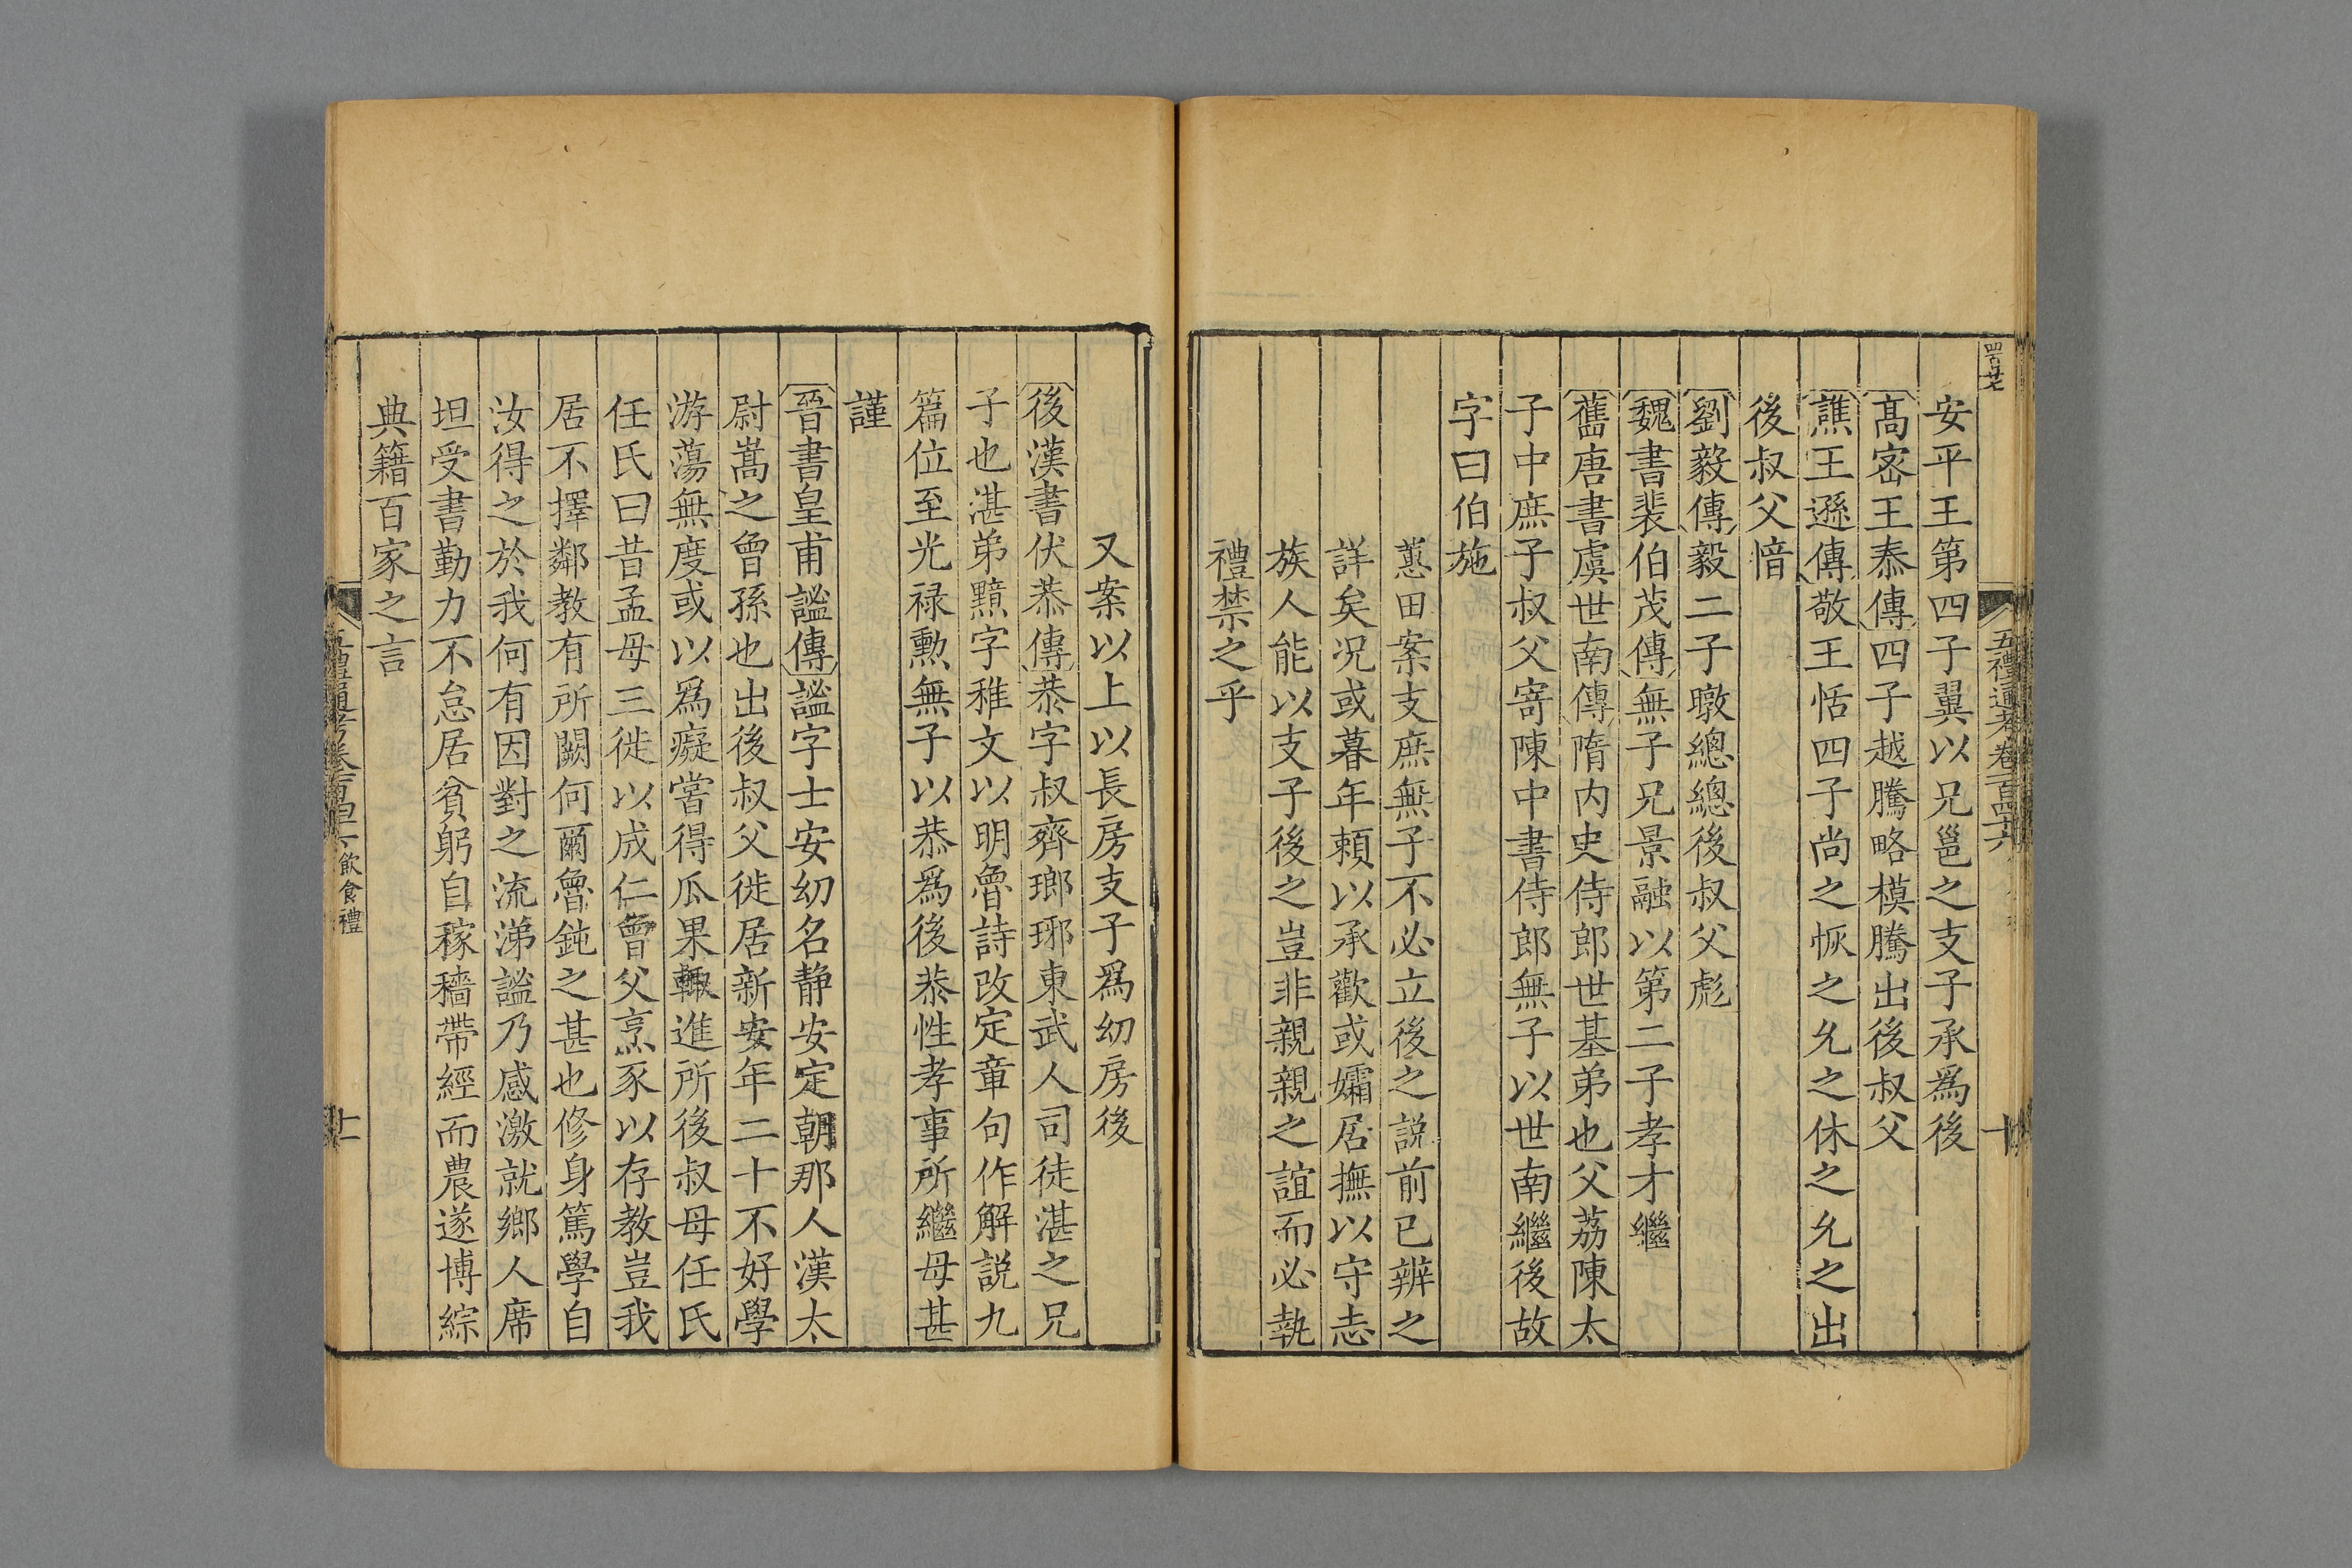 五禮通考卷一百四十六
十
安平王第四子翼以兄邕之支子承爲後
髙宻王泰傳四子越騰略模騰出後叔父
譙王遜傳敬王恬四子尚之恢之允之休之允之出
後叔父愔
劉毅傳毅二子暾總總後叔父彪
魏書裴伯茂傳無子兄景融以第二子孝才繼
舊唐書虞世南傳隋内史侍郎世基弟也父荔陳太
子中庶子叔父寄陳中書侍郎無子以世南繼後故
字曰伯施
蕙田案支庶無子不必立後之説前已辨之
詳矣况或暮年頼以承歡或孀居撫以守志
族人能以支子後之豈非親親之誼而必執
禮禁之乎
又案以上以長房支子爲幼房後
後漢書伏恭傳恭字叔齊瑯琊東武人司徒湛之兄
子也湛弟黯字稚文以明魯詩改定章句作解説九
篇位至光禄勲無子以恭爲後恭性孝事所繼母甚
謹
晉書皇甫謐傳謐字士安幼名静安定朝那人漢太
尉嵩之曾孫也出後叔父徙居新安年二十不好學
游蕩無度或以爲癡嘗得瓜果輙進所後叔母任氏
任氏曰昔孟母三徙以成仁曾父烹豕以存教豈我
居不擇鄰教有所闕何爾魯鈍之甚也修身篤學自
汝得之於我何有因對之流涕謐乃感激就鄉人席
坦受書勤力不怠居貧躬自稼穡帶經而農遂博綜
典籍百家之言
五禮通考卷一百四十六 飲食禮
十一